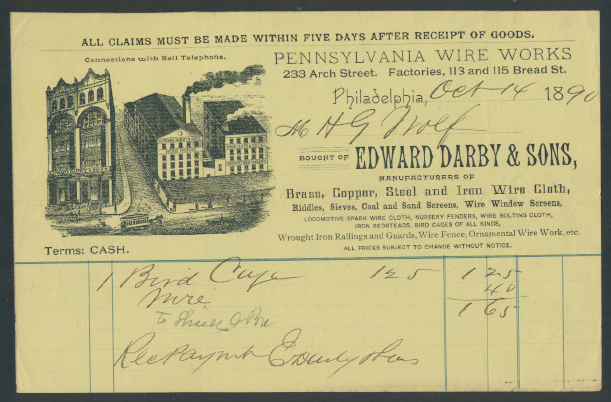 ALL CLAIMS MUST BE MADE WITHIN FIVE DAYS AFTER RECEIPT OF GOODS.
Connections with Bell Telephone.
PENNSYLVANIA WIRE WORKS
233 Arch Street. Factories, 113 and 115 Bread St.
Philadelphia, Oct 14 1890
M H G Wolf
BOUGHT OF EDWARD DARBY & SONS,
MANUFACTURERS OF
Brass, Copper, Steel and Iron Wire Cloth,
Riddles, Sieves, Coal and Sand Screens, Wire Window Screens,
LOCOMOTIVE SPARK WIRE CLOTH, NURSERY FENDERS, WIRE BOLTING CLOTH,
IRON BEDSTEADS, BIRD CAGES OF ALL KINDS,
Wrought Iron Railings and Guards, Wire Fence, Ornamental Wire Work, etc.
ALL PRICES SUBJECT TO CHANGE WITHOUT NOTICE.
Terms: CASH.
1 Bird Cage 125 125
Wire 40
165
Rec Payment E Darby & Sons